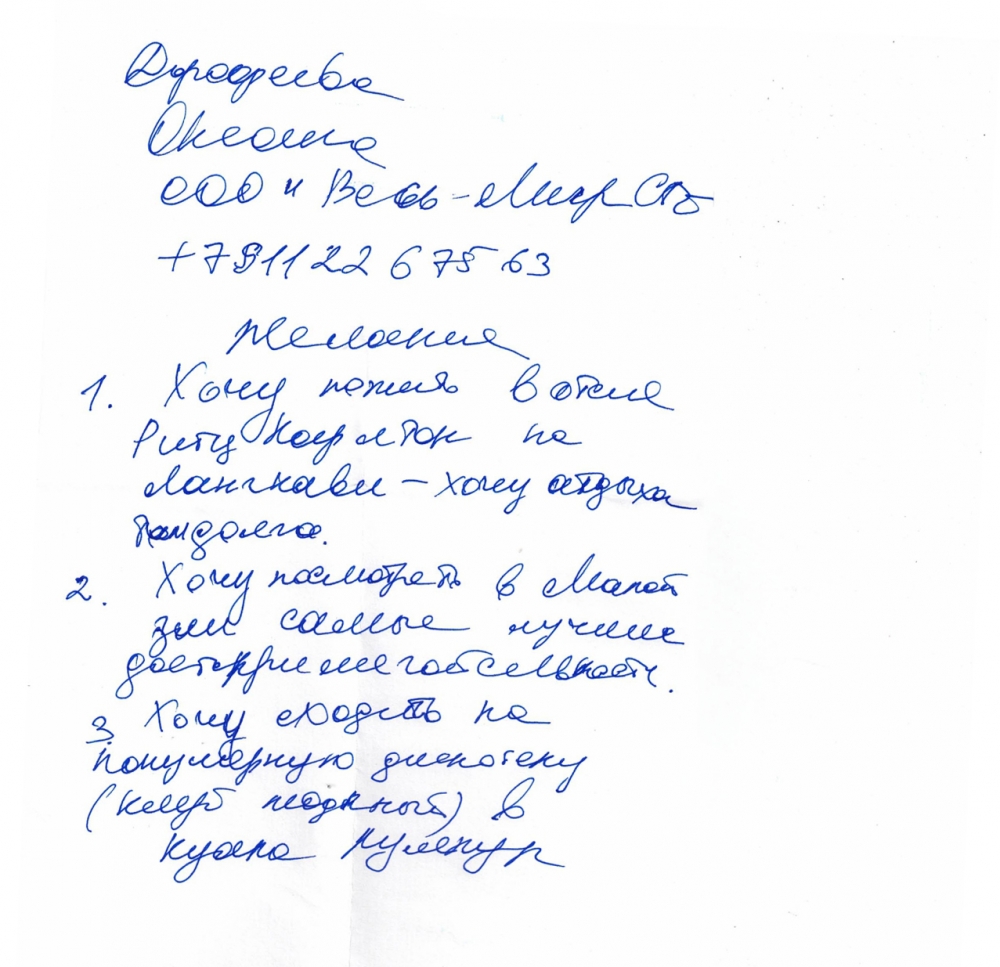 Оксана
ООО "Весь-Мир СПб
+7911 22 675 63
Желания
1. Хочу пожить в отеле
Ритц Карлтон на
Лангкави - хочу отдыха
там долго.
2. Хочу посмотреть в Малай
зии самые лучшие
достопримечательности.
3. Хочу сходить на
популярную дискотеку
(клуб модный) в
Куала Лумпур